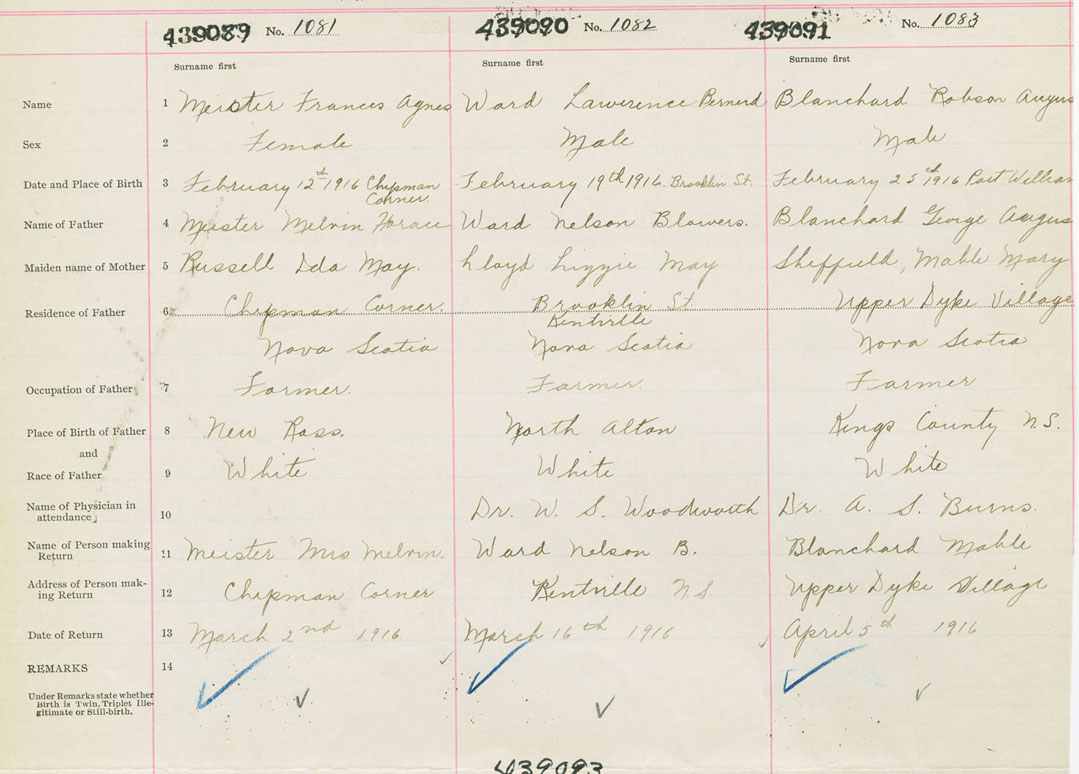 439089 No. 1081 439090 No. 1082 439091 No. 1083
Surname first Surname first Surname first
Name 1 Meister Frances Agnes Ward Lawerence Bernerd Blanchard Robson Angus
Sex 2 Female Male Male
Date and Place of Birth 3 February 12th 1916 Chipman February 19th 1916. Brooklin St. February 25th 1916 Port William
Corner.
Name of Father 4 Meister Melvin Horace Ward Nelson Blowers. Blanchard George Angus
Maiden name of Mother 5 Russell Ida May. Lloyd Lizzie May Sheffield, Mable Mary
Residence of Father 6 Chipman Corner. Brooklin St Upper Dyke Village
Kentville
Nova Scotia Nova Scotia Nova Scotia
Occupation of Father 7 Farmer. Farmer. Farmer
Place of Birth of Father 8 New Ross. North Alton Kings County N.S.
and
Race of Father 9 White White White
Name of Physician in
attendance 10 Dr. W. S. Woodworth Dr. A. S. Burns.
Name of Person making
Return 11 Meister Mrs Melvin. Ward Nelson B. Blanchard Mable
Address of Person mak-
ing Return 12 Chipman Corner Kentville N.S. Upper Dyke Village
Date of Return 13 March 2nd 1916 March 16th 1916 April 5th 1916
REMARKS 14
Under Remarks state whether
Birth is Twin, Triplet Ille-
gitimate or Still-birth.
439093